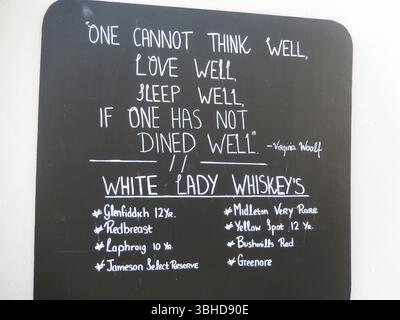 "ONE CANNOT THINK WELL,
LOVE WELL,
SLEEP WELL,
IF ONE HAS NOT
DINED WELL". -Virginia Woolf
//
WHITE LADY WHISKEY'S
* Glenfiddich 12 Yr.
* Redbreast
* Laphroig 10 Yr.
* Jameson Select Reserve
* Midleton Very Rare
* Yellow Spot 12 Yr.
* Bushmills Red
* Greenore
alamy
Image ID: 2BHD90E
www.alamy.com